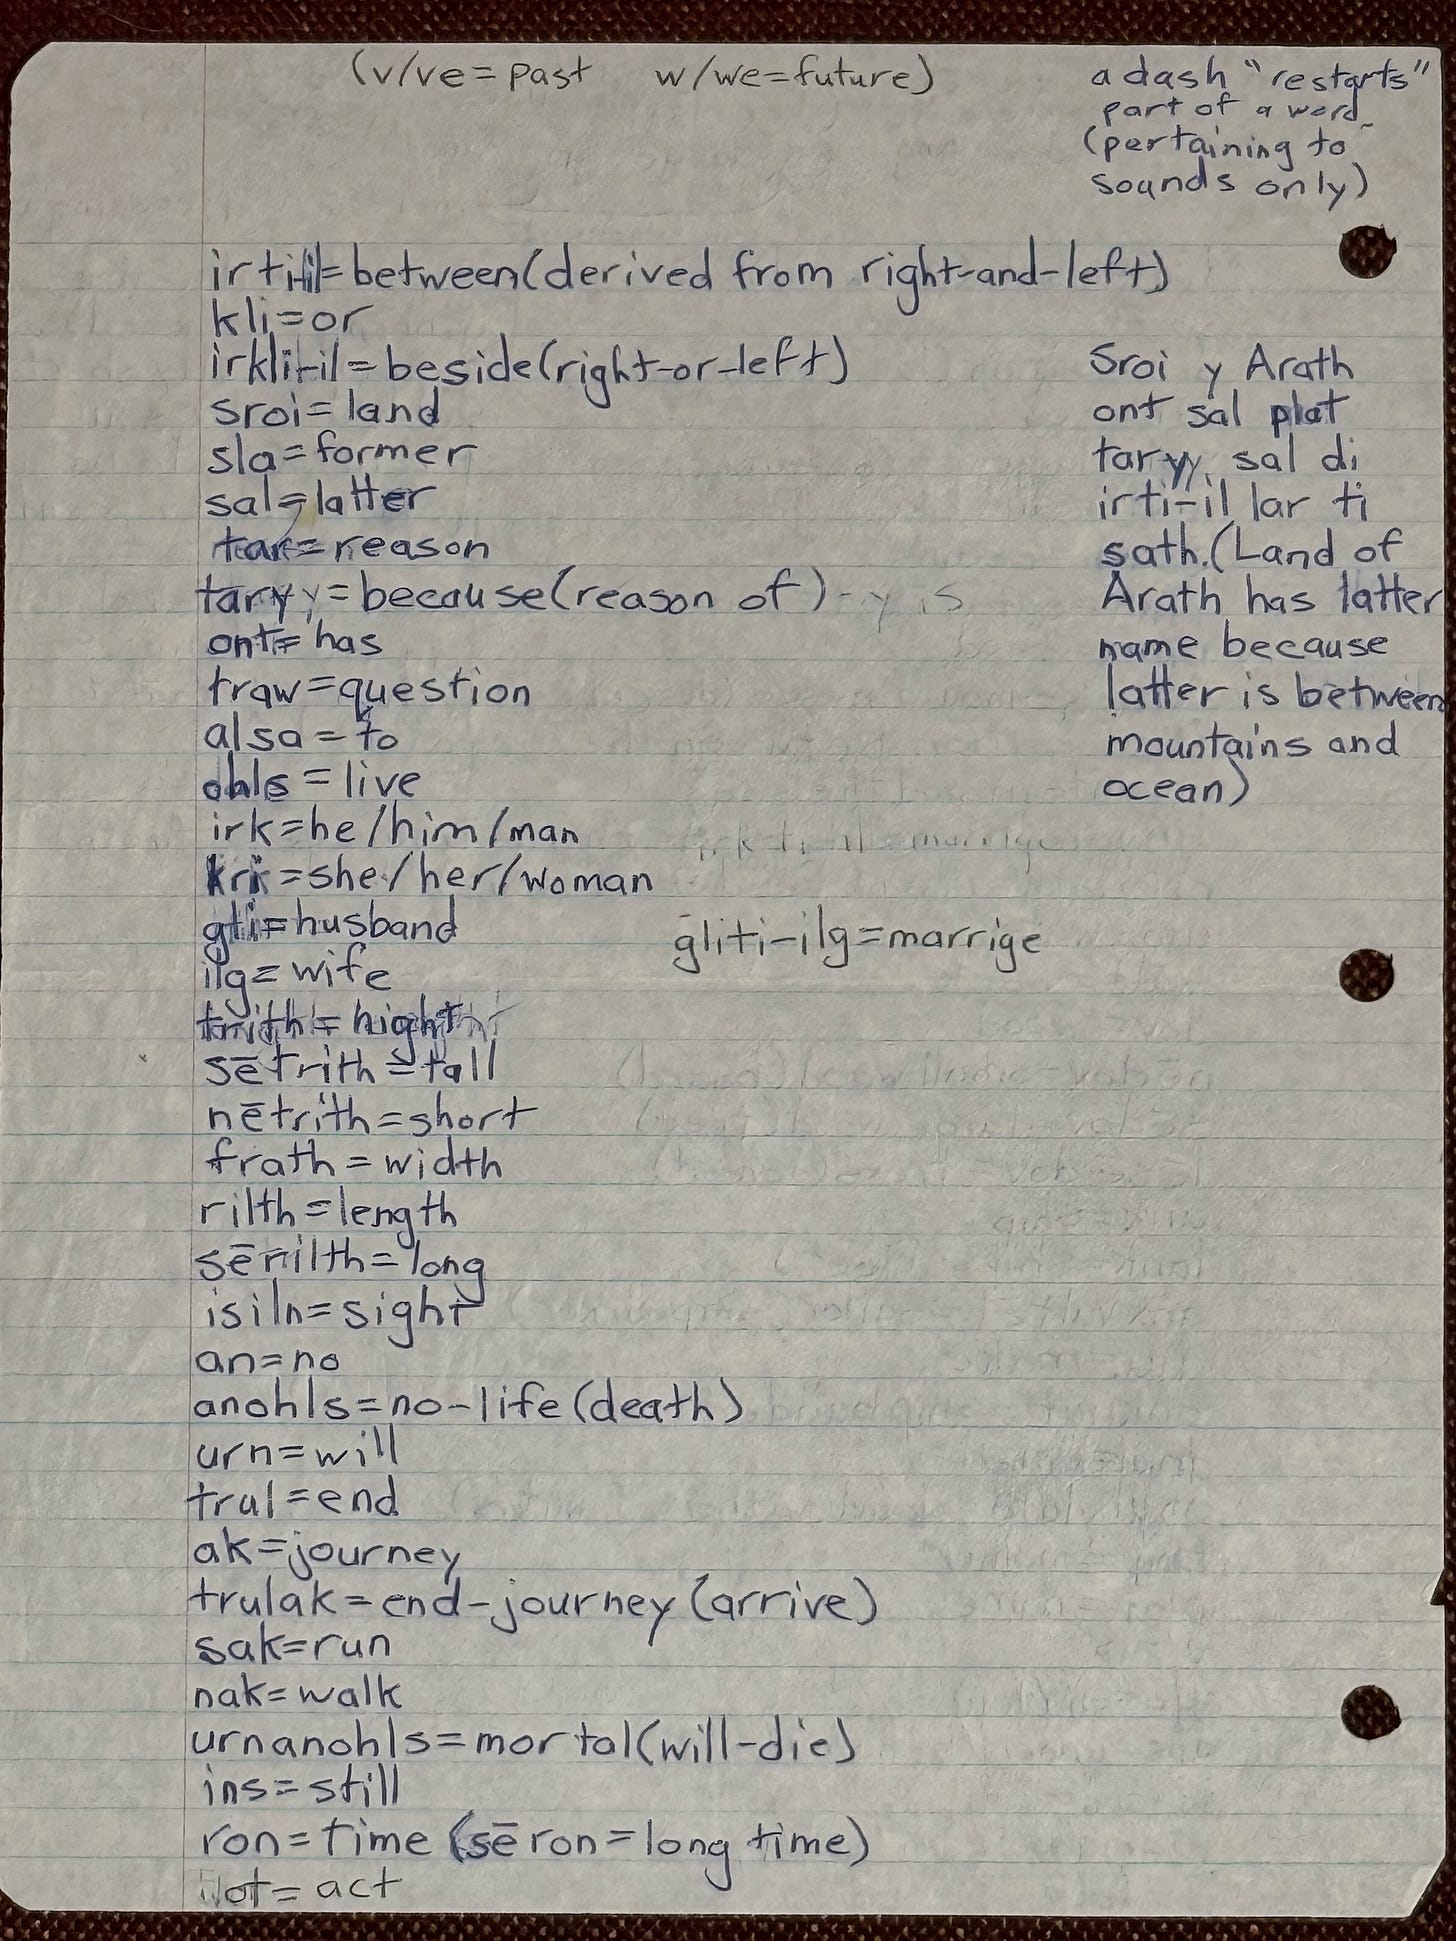 (v/ve=past w/we=future)
a dash "restarts"
part of a word
(pertaining to
sounds only)
irti-il=between(derived from right-and-left)
kli=or
irkli-il=beside(right-or-left)
sroi=land
sla=former
sal=latter
tar=reason
taryy=because(reason of)-y is
ont=has
traw=question
alsa=to
ohls=live
irk=he/him/man
kri=she/her/woman
gli=husband
ilg=wife
trith=hight
sētrith=tall
nētrith=short
frath=width
rilth=length
sērilth=long
isiln=sight
an=no
anohls=no-life(death)
urn=will
trul=end
ak=journey
trulak=end-journey(arrive)
sak=run
nak=walk
urnanohls=mortal(will-die)
ins=still
ron=time (sēron=long time)
=act
Sroi y Arath
ont sal plat
taryy sal di
irti-il lar ti
sath.(Land of
Arath has latter
name because
latter is between
mountains and
ocean)
gliti-ilg=marrige